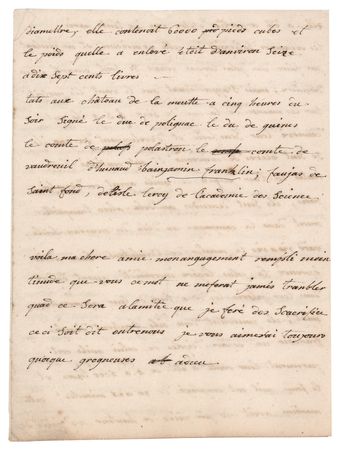 diamettre, elle contenoit 60000 pieds cubes et
le poids quelle a enlevé étoit d'anviron Seize
adix Sept cents livres
tats aux château de la muette a cinq heures du
Soir Signé le duc de polignac le du de guines
le comte de polastron le comte de
vaudreuil d'hunaud bainjamin franklin; faujas de
Saint fond, delisle leroy de lacademie des Science.
voila ma chere amie monangagement rempli
tinude que vous cemot ne meferat jamès trambler
quad ce Sera alamitié que je feré des Scacrifice
ceci Soit dit entrenous je vous aimerai toujours
quoique grogneuse adieu